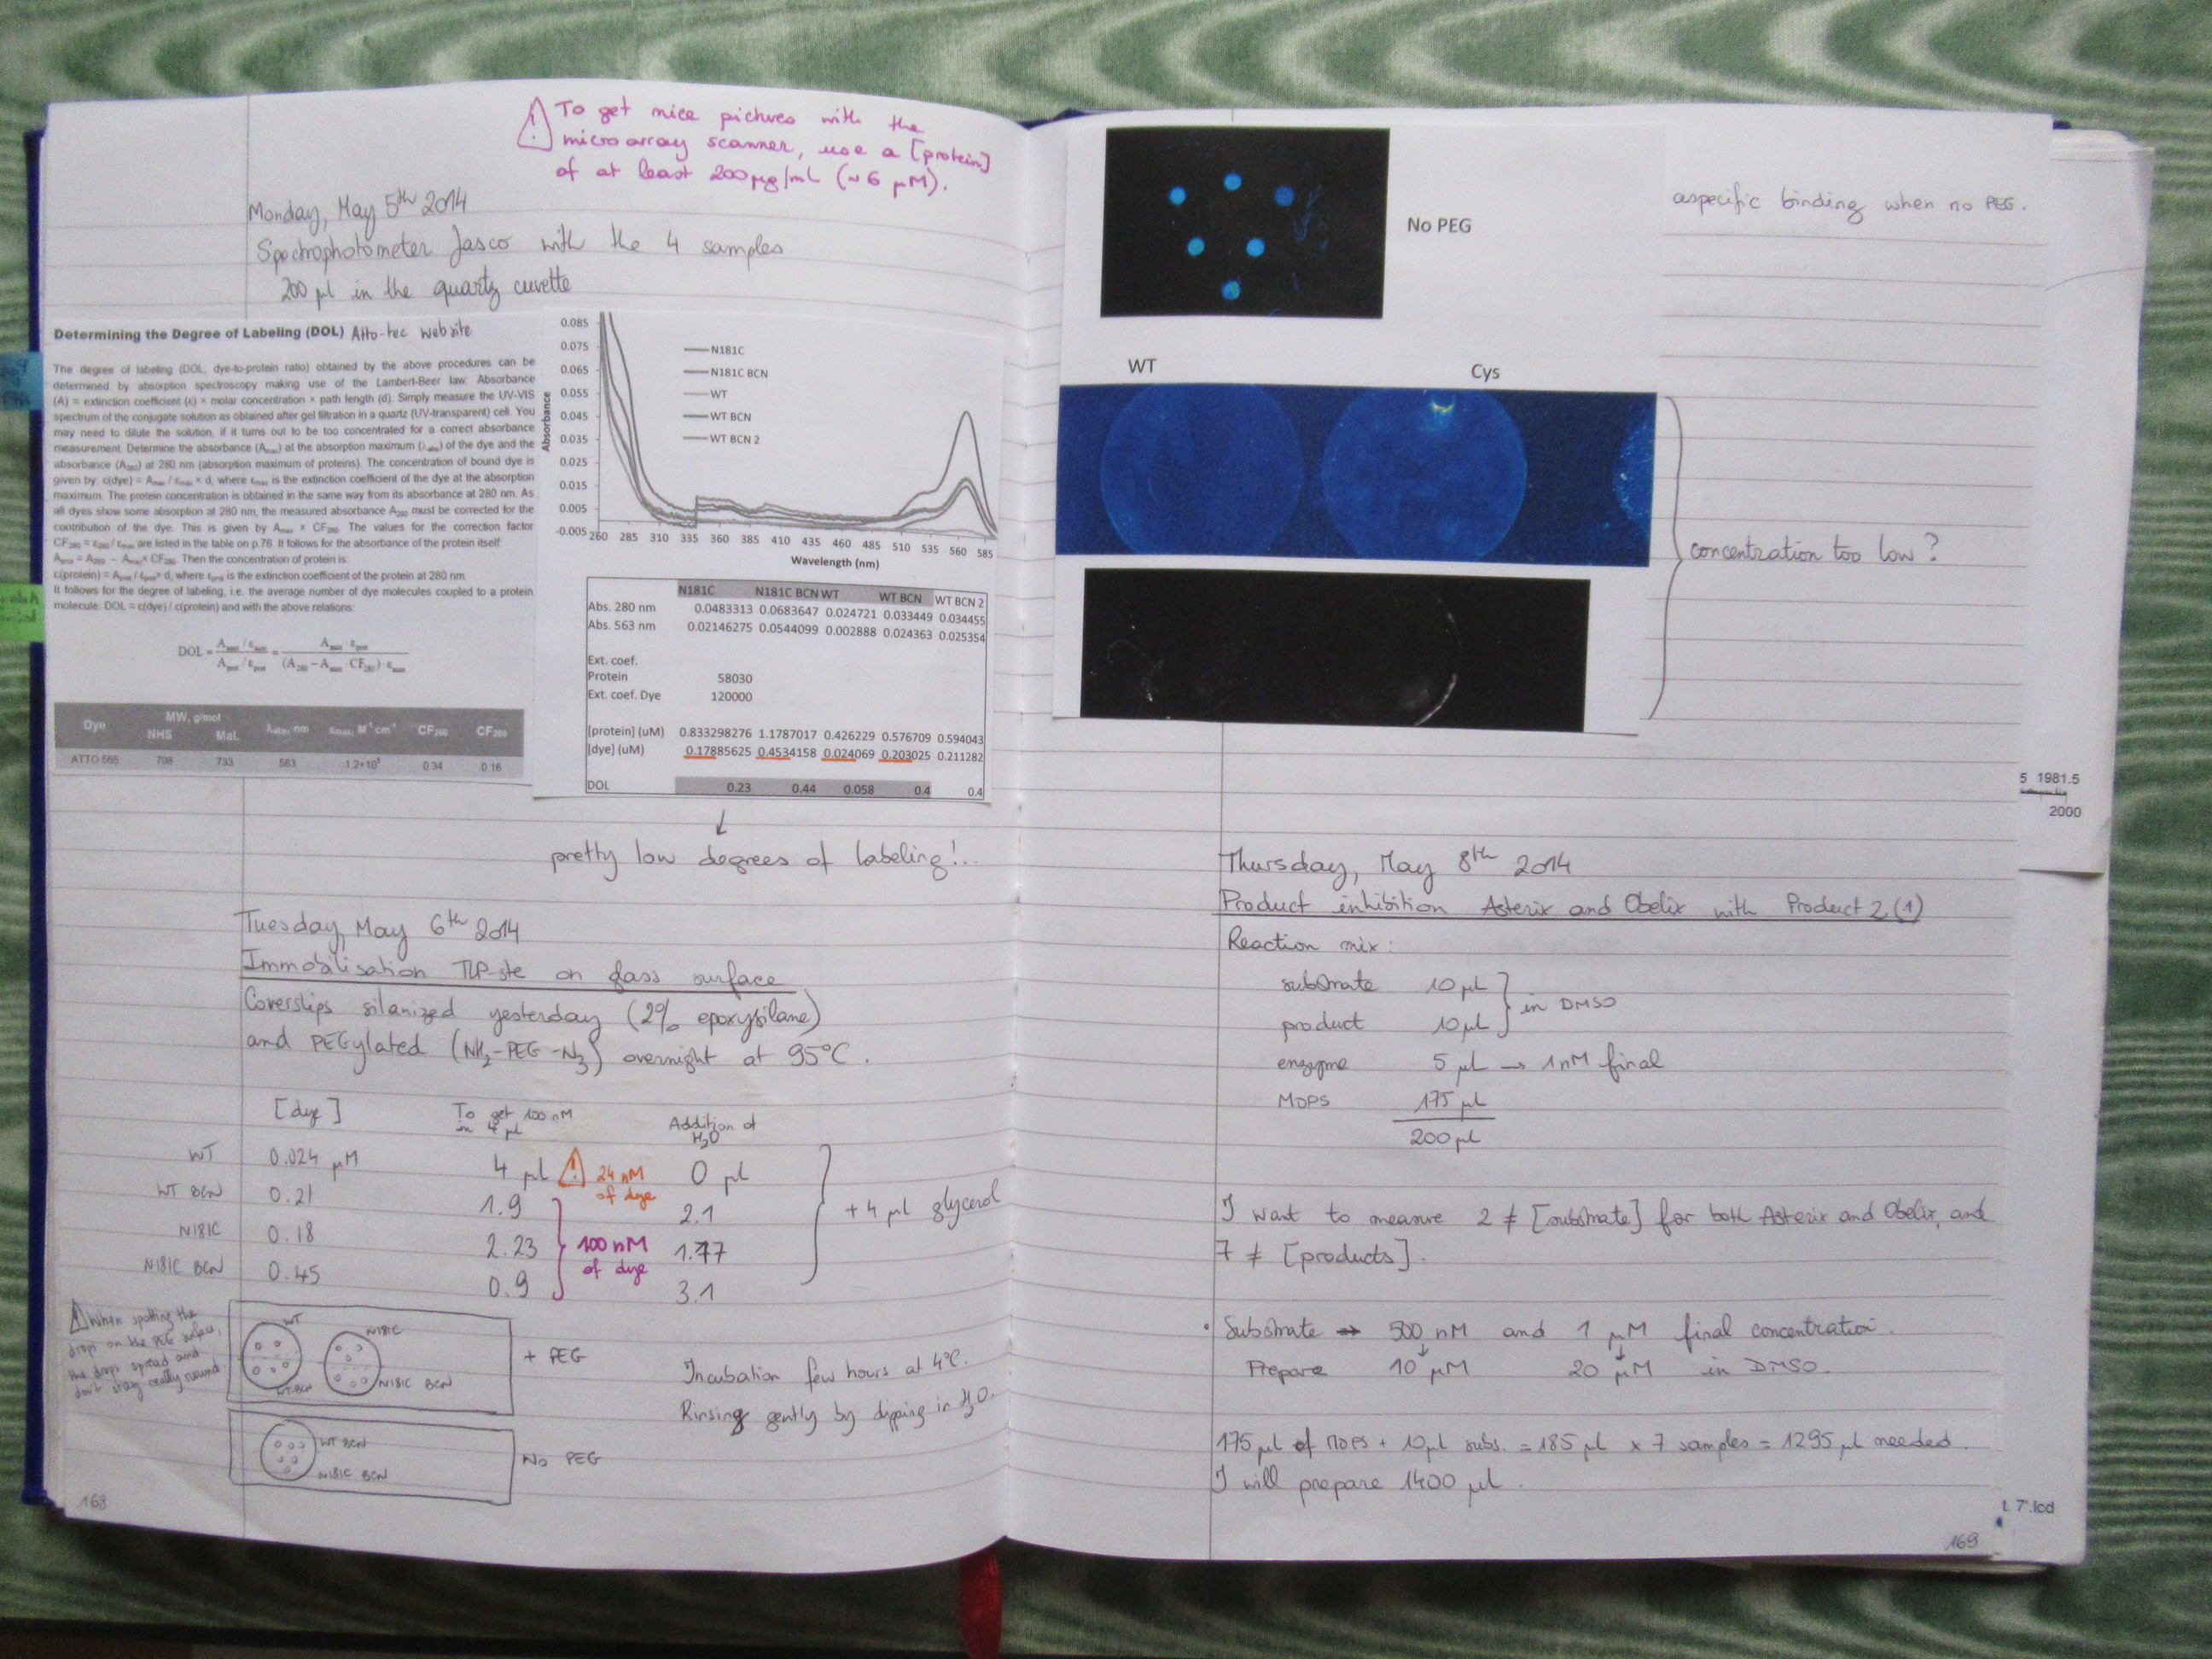 ⚠ To get nice pictures with the
microarray scanner, use a [protein]
of at least 200 µg/mL (~6 µM).
Monday, May 5th 2014
Spectrophotometer Jasco with the 4 samples
200 µl in the quartz cuvette
Determining the Degree of Labeling (DOL) Atto-tec website
The degree of labeling (DOL, dye-to-protein ratio) obtained by the above procedures can be
determined by absorption spectroscopy making use of the Lambert-Beer law: Absorbance
(A) = extinction coefficient (ε) × molar concentration × path length (d). Simply measure the UV-VIS
spectrum of the conjugate solution as obtained after gel filtration in a quartz (UV-transparent) cell. You
may need to dilute the solution, if it turns out to be too concentrated for a correct absorbance
measurement. Determine the absorbance (Amax) at the absorption maximum (λabs) of the dye and the
absorbance (A280) at 280 nm (absorption maximum of proteins). The concentration of bound dye is
given by: c(dye) = Amax / εmax × d, where εmax is the extinction coefficient of the dye at the absorption
maximum. The protein concentration is obtained in the same way from its absorbance at 280 nm. As
all dyes show some absorption at 280 nm, the measured absorbance A280 must be corrected for the
contribution of the dye. This is given by Amax × CF280. The values for the correction factor
CF280 = ε280 / εmax are listed in the table on p.76. It follows for the absorbance of the protein itself:
Aprot = A280 − Amax × CF280. Then the concentration of protein is:
c(protein) = Aprot / εprot × d, where εprot is the extinction coefficient of the protein at 280 nm
It follows for the degree of labeling, i.e. the average number of dye molecules coupled to a protein
molecule: DOL = c(dye) / c(protein) and with the above relations:
DOL = Amax / εmax / Aprot / εprot = Amax · εprot / (A280 − Amax · CF280) · εmax
Dye MW, g/mol λabs, nm εmax, M-1 cm-1 CF260 CF280
NHS Mal.
ATTO 565 708 733 563 1.2×10⁵ 0.34 0.16
Absorbance
0.085
0.075
0.065
0.055
0.045
0.035
0.025
0.015
0.005
-0.005
N181C
N181C BCN
WT
WT BCN
WT BCN 2
260 285 310 335 360 385 410 435 460 485 510 535 560 585
Wavelength (nm)
N181C N181C BCN WT WT BCN WT BCN 2
Abs. 280 nm 0.0483313 0.0683647 0.024721 0.033449 0.034455
Abs. 563 nm 0.02146275 0.0544099 0.002888 0.024363 0.025354
Ext. coef.
Protein 58030
Ext. coef. Dye 120000
[protein] (uM) 0.833298276 1.1787017 0.426229 0.576709 0.594043
[dye] (uM) 0.17885625 0.4534158 0.024069 0.203025 0.211282
DOL 0.23 0.44 0.058 0.4 0.4
↓
pretty low degrees of labeling!..
Tuesday, May 6th 2014
Immobilisation TLP-ste on glass surface
Coverslips silanized yesterday (2% epoxysilane)
and PEGylated (NH2-PEG-N3) overnight at 95°C.
[dye] To get 100 nM in 4 µl Addition of H2O
WT 0.024 µM 4 µl ⚠ 24 nM of dye 0 µl
WT BCN 0.21 1.9 2.1
N181C 0.18 2.23 1.77
N181C BCN 0.45 0.9 3.1
100 nM of dye
+ 4 µl glycerol
⚠ When spotting the
drops on the PEG surface,
the drops spread and
don't stay really round.
WT
WT-BCN
N181C
N181C BCN
+ PEG
WT BCN
N181C BCN
No PEG
Incubation few hours at 4°C.
Rinsing gently by dipping in H2O.
168
No PEG
aspecific binding when no PEG.
WT Cys
concentration too low?
5 1981.5
2000
Thursday, May 8th 2014
Product inhibition Asterix and Obelix with Product 2 (1)
Reaction mix:
substrate 10 µl
product 10 µl
} in DMSO
enzyme 5 µl → 1 nM final
MOPS 175 µl
200 µl
I want to measure 2 ≠ [substrate] for both Asterix and Obelix, and
7 ≠ [products].
• Substrate → 500 nM and 1 µM final concentration.
Prepare 10 µM 20 µM in DMSO.
175 µl of MOPS + 10 µl subs. = 185 µl x 7 samples = 1295 µl needed.
I will prepare 1400 µl.
t. 7'.lcd
169